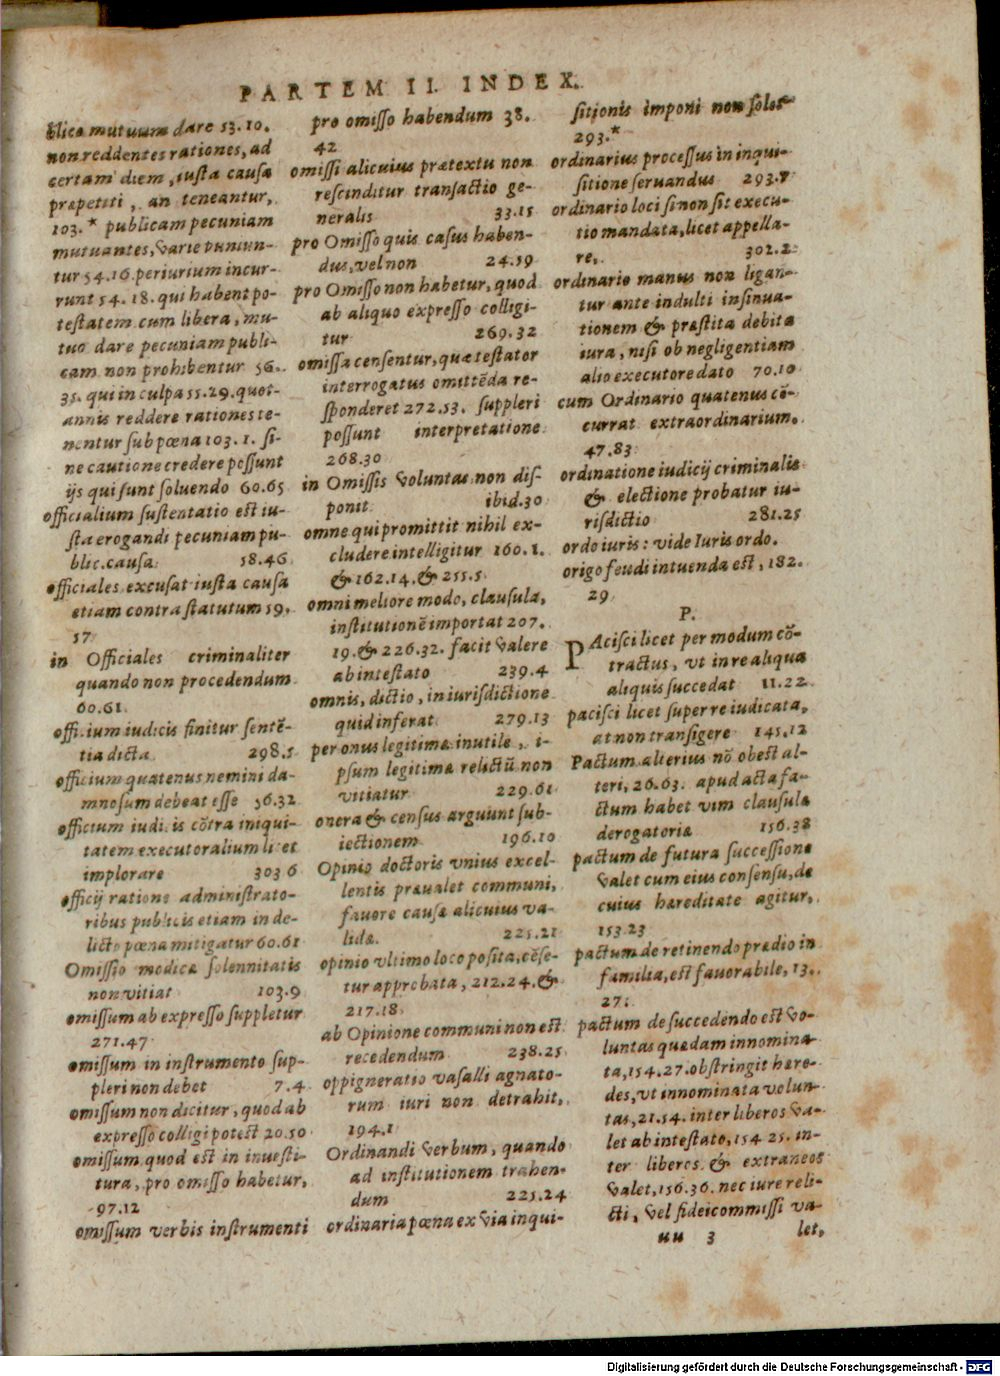 PARTEM II. INDEX.
blico mutuum dare 53.10.
non reddentes rationes, ad
certam diem, iusta causa
præpetiti, an teneantur,
103.* publicam pecuniam
mutuantes, varie puniun-
tur 54.16. periurium incur-
runt 54. 18. qui habent po-
testatem cum libera, mu-
tuo dare pecuniam publi-
cam non prohibentur 56.
35. qui in culpa 55.29. quot-
annis reddere rationes te-
nentur sub pœna 103. 1. si-
ne cautione credere possunt
ijs qui sunt soluendo 60.65
officialium sustentatio est iu-
sta erogandi pecuniam pu-
blic. causa 58.46
officiales excusat iusta causa
etiam contra statutum 59.
57
in Officiales criminaliter
quando non procedendum
60.61.
officium iudicis finitur sentē-
tia dicta 298.5
officium quatenus nemini da-
mnosum debeat esse 56.32
officium iudicis cōtra iniqui-
tatem executoralium licet
implorare 303 6
officij ratione administrato-
ribus publicis etiam in de-
licto pœna mitigatur 60.61
Omissio modicæ solennitatis
non vitiat 103.9
omissum ab expresso suppletur
271.47
omissum in instrumento sup-
pleri non debet 7.4
omissum non dicitur, quod ab
expresso colligi potest 20.50
omissum quod est in inuesti-
tura, pro omisso habetur,
97.12
omissum verbis instrumenti
pro omisso habendum 38.
42
omissi alicuius prætextu non
rescinditur transactio ge-
neralis 33.15
pro Omisso quis casus haben-
dus, vel non 24.59
pro Omisso non habetur, quod
ab aliquo expresso colligi-
tur 269.32
omissa censentur, quæ testator
interrogatus omittēda re-
sponderet 272.53. suppleri
possunt interpretatione
268.30
in Omissis voluntas non dis-
ponit ibid.30
omne qui promittit nihil ex-
cludere intelligitur 160.1.
& 162.14. & 255.5
omni meliore modo, clausula,
institutionē importat 207.
19. & 226.32. facit valere
ab intestato 239.4
omnis, dictio, in iurisdictione
quid inferat 279.13
per onus legitimæ inutile, i-
psum legitimæ relictū non
vitiatur 229.61
onera & census arguunt sub-
iectionem 196.10
Opinio doctoris vnius excel-
lentis præualet communi,
fauore causæ alicuius va-
lida. 225.21
opinio vltimo loco posita, cēse-
tur approbata, 212.24. &
217.18
ab Opinione communi non est
recedendum 238.25
oppigneratio vasalli agnato-
rum iuri non detrahit,
194.1
Ordinandi verbum, quando
ad institutionem trahen-
dum 225.24
ordinaria pœna ex via inqui-
sitionis imponi non solet
293.*
ordinarius processus in inqui-
sitione seruandus 293.7
ordinario loci si non sit execu-
tio mandata, licet appella-
re, 302.2
ordinario manus non ligan-
tur ante indulti insinua-
tionem & præstita debita
iura, nisi ob negligentiam
alio executore dato 70.10
cum Ordinario quatenus cō-
currat extraordinarium.
47.83
ordinatione iudicij criminalis
& electione probatur iu-
risdictio 281.25
ordo iuris: vide Iuris ordo.
origo feudi intuenda est, 182.
29
P.
PAcisci licet per modum cō-
tractus, vt in re aliqua
aliquis succedat 11.22
pacisci licet super re iudicata,
at non transigere 145.12
Pactum alterius nō obest al-
teri, 26.63. apud acta fa-
ctum habet vim clausulæ
derogatoriæ 156.38
pactum de futura successione
valet cum eius consensu, de
cuius hæreditate agitur,
153.23
pactum de retinendo prædio in
familia, est fauorabile, 13.
27.
pactum de succedendo est vo-
luntas quædam innomina-
ta, 154.27. obstringit here-
des, vt innominata volun-
tas, 21.54. inter liberos va-
let ab intestato, 154 25. in-
ter liberos & extraneos
valet, 156.36. nec iure reli-
cti, vel fideicommissi va-
uu 3 let,
Digitalisierung gefördert durch die Deutsche Forschungsgemeinschaft - DFG